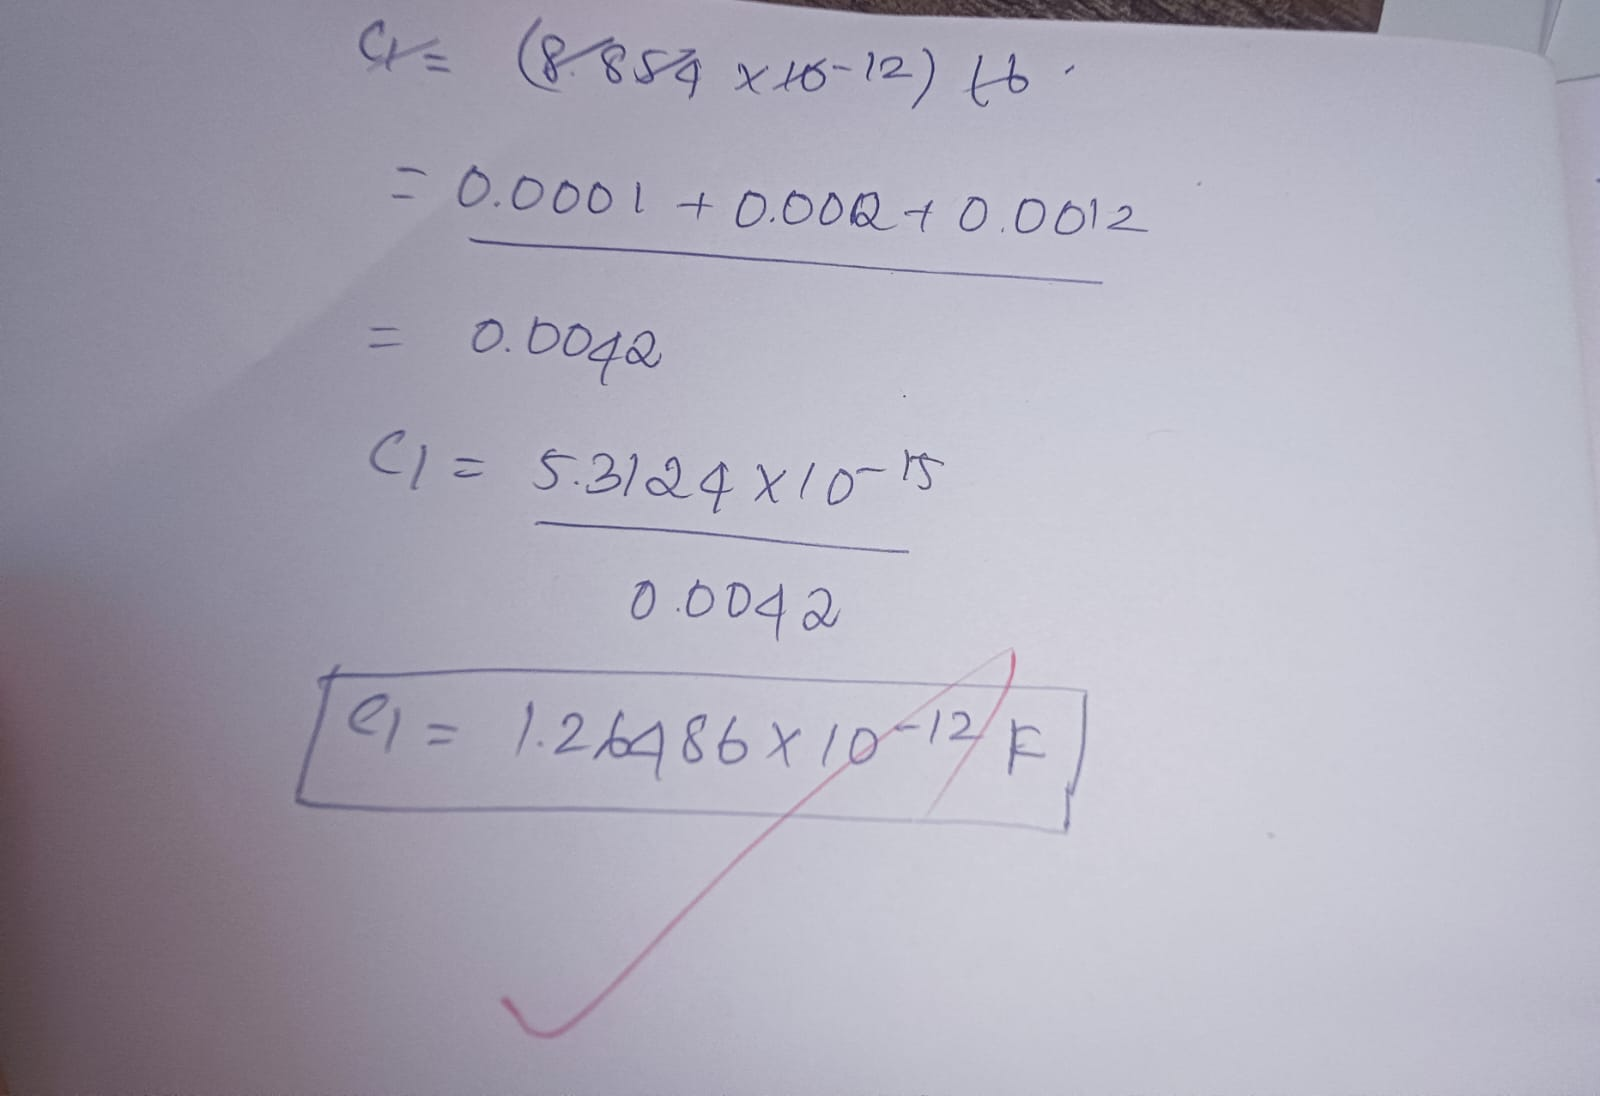 C1 = (8.854 x 10-12) tb
= 0.0001 + 0.002 + 0.0012
= 0.0042
C1 = 5.3124 x 10-15
0.0042
C1 = 1.26486 x 10-12 F